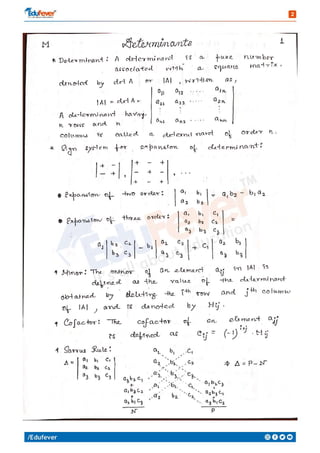 Edufever
2
M Determinants 1
Determinant : A determinant is a pure number
associated with a square matrix.
denoted by det A or |A|, written as,
|A| = det A = a11 a12 ..... a1n
a21 a22 ..... a2n
A determinant having
n rows and n an1 an2 ..... ann
columns is called a determinant of order n.
Sign system for expansion of determinant:
| + - |
| - + | , | + - + |
| - + - |
| + - + | , . . .
Expansion of two order: | a1 b1 | = a1b2 - b1a2
| a2 b2 |
Expansion of three order: | a1 b1 c1 | =
| a2 b2 c2 |
| a3 b3 c3 |
a1 | b2 c2 | - b1 | a2 c2 | + c1 | a2 b2 |
| b3 c3 | | a3 c3 | | a3 b3 |
Minor: The minor of an element aij in |A| is
defined as the value of the determinant
obtained by deleting the ith row and jth column
of |A|, and is denoted by Mij.
Cofactor: The cofactor of an element aij
is defined as Cij = (-1)i+j . Mij
Sarrus Rule:
Δ = | a1 b1 c1 |
| a2 b2 c2 |
| a3 b3 c3 |
a1 b1 c1
a2 b2 c2
a3 b3 c3
a1 b1 c1
a2 b2 c2
⇒ Δ = P-N
N P
/Edufever